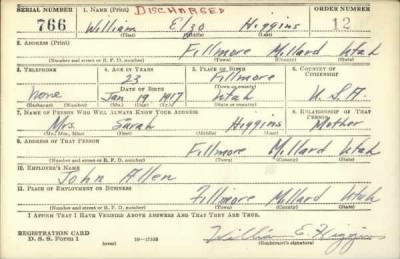 SERIAL NUMBER 1. NAME (Print) DISCHARGED ORDER NUMBER
766 William Elzo Higgins 12
(First) (Middle) (Last)
2. ADDRESS (Print)
Fillmore Millard Utah
(Number and street or R. F. D. number) (Town) (County) (State)
3. TELEPHONE 4. AGE IN YEARS 5. PLACE OF BIRTH 6. COUNTRY OF CITIZENSHIP
23 Fillmore
DATE OF BIRTH (Town or county)
None Jan 19 1917 Utah U.S.A.
(Exchange) (Number) (Mo.) (Day) (Yr.) (State or country)
7. NAME OF PERSON WHO WILL ALWAYS KNOW YOUR ADDRESS 8. RELATIONSHIP OF THAT PERSON
Mrs. Sarah Higgins Mother
(Mr., Mrs., Miss) (First) (Middle) (Last)
9. ADDRESS OF THAT PERSON
Fillmore Millard Utah
(Number and street or R. F. D. number) (Town) (County) (State)
10. EMPLOYER'S NAME
John Allen
11. PLACE OF EMPLOYMENT OR BUSINESS
Fillmore Millard Utah
(Number and street or R. F. D. number) (Town) (County) (State)
I AFFIRM THAT I HAVE VERIFIED ABOVE ANSWERS AND THAT THEY ARE TRUE.
REGISTRATION CARD
D. S. S. Form 1 16—17105 William E. Higgins
(Registrant's signature)